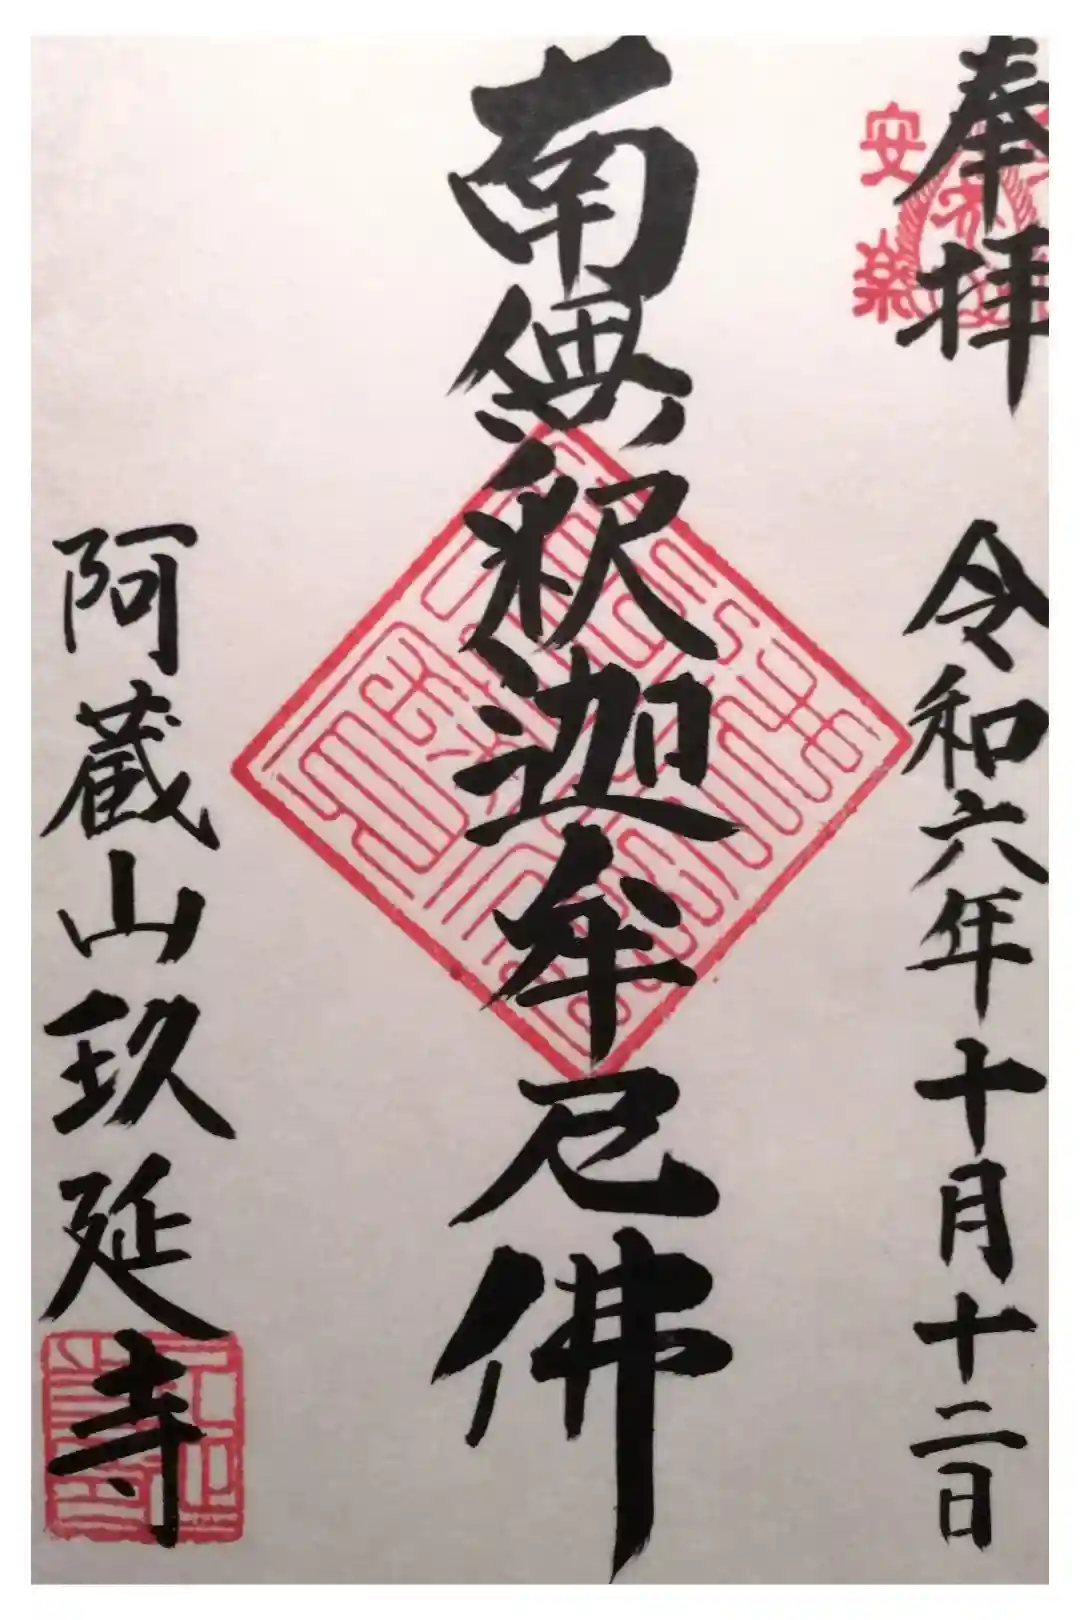 奉拝
安楽
令和六年十月十二日
南無釈迦牟尼佛
阿蔵山玖延寺